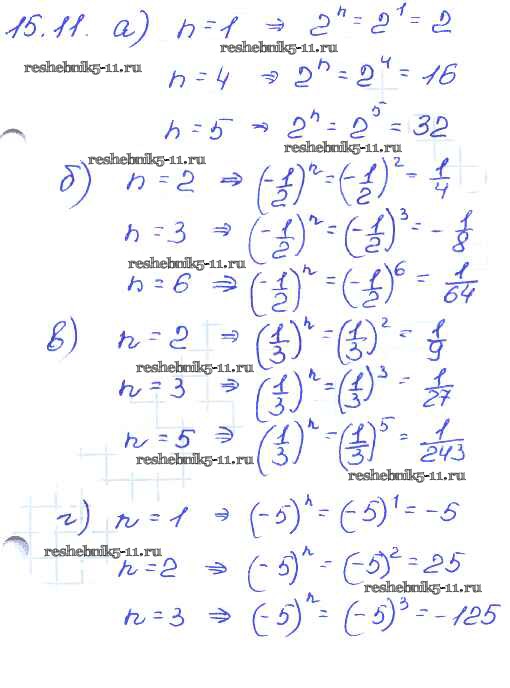 15.11. а) n = 1 ⇒ 2ⁿ = 2¹ = 2
reshebnik5-11.ru
reshebnik5-11.ru
n = 4 ⇒ 2ⁿ = 2⁴ = 16
n = 5 ⇒ 2ⁿ = 2⁵ = 32
reshebnik5-11.ru
reshebnik5-11.ru
б) n = 2 ⇒ (-1/2)ⁿ = (-1/2)² = 1/4
n = 3 ⇒ (-1/2)ⁿ = (-1/2)³ = -1/8
reshebnik5-11.ru
n = 6 ⇒ (-1/2)ⁿ = (-1/2)⁶ = 1/64
в) n = 2 ⇒ (1/3)ⁿ = (1/3)² = 1/9
reshebnik5-11.ru
n = 3 ⇒ (1/3)ⁿ = (1/3)³ = 1/27
n = 5 ⇒ (1/3)ⁿ = (1/3)⁵ = 1/243
reshebnik5-11.ru
reshebnik5-11.ru
г) n = 1 ⇒ (-5)ⁿ = (-5)¹ = -5
reshebnik5-11.ru
n = 2 ⇒ (-5)ⁿ = (-5)² = 25
reshebnik5-11.ru
n = 3 ⇒ (-5)ⁿ = (-5)³ = -125